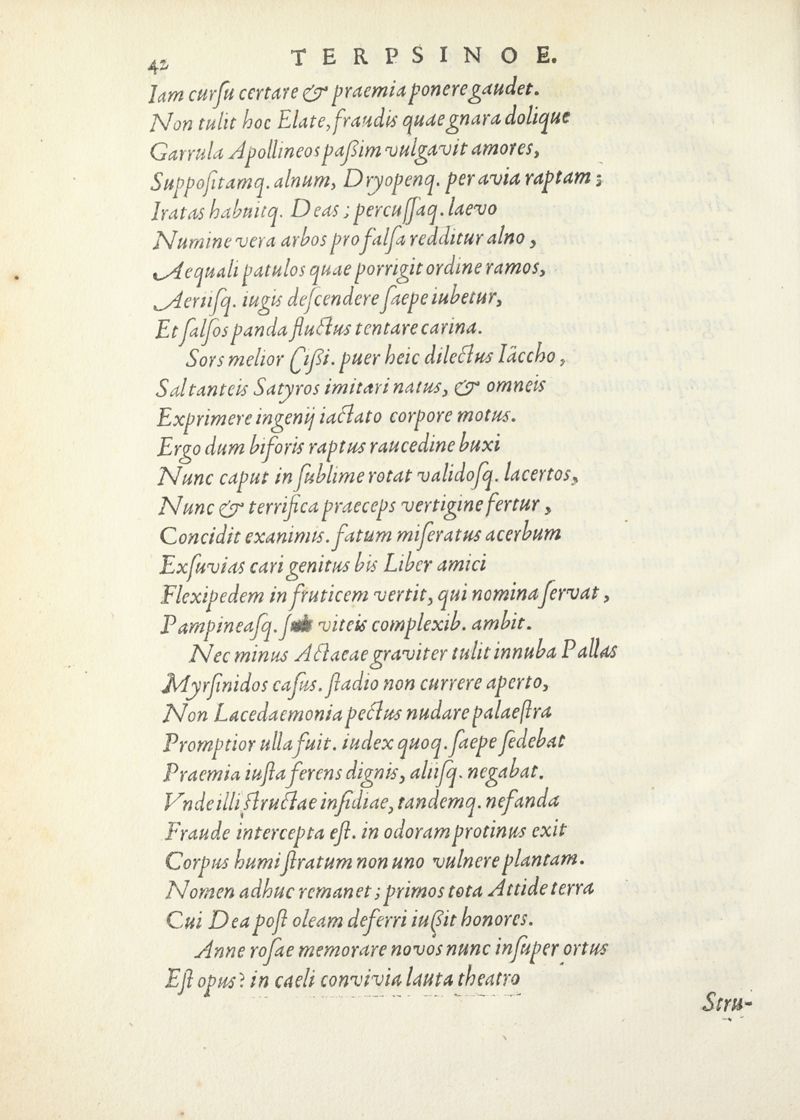 42
TERPSINOE.
Iam cursu certare & praemia ponere gaudet.
Non tulit hoc Elate, fraudis quae gnara dolique
Garrula Apollineos paßim vulgavit amores,
Suppositamq. alnum, Dryopenq. per avia raptam;
Iratas habuitq. Deas; percussaq. laevo
Numine vera arbos pro falsa redditur alno,
Aequali patulos quae porrigit ordine ramos,
Aeriisq. iugis descendere saepe iubetur,
Et falsos panda fluctus tentare carina.
Sors melior Cißi. puer heic dilectus Iâccho,
Saltanteis Satyros imitari natus, & omneis
Exprimere ingenij iactato corpore motus.
Ergo dum biforis raptus raucedine buxi
Nunc caput in sublime rotat validosq. lacertos,
Nunc & terrifica praeceps vertigine fertur,
Concidit exanimis. fatum miseratus acerbum
Exsuvias cari genitus bis Liber amici
Flexipedem in fruticem vertit, qui nomina servat,
Pampineasq. viteis complexib. ambit.
Nec minus Actaeae graviter tulit innuba Pallas
Myrsinidos casus. stadio non currere aperto,
Non Lacedaemonia pectus nudare palaestra
Promptior ulla fuit. iudex quoq. saepe sedebat
Praemia iusta ferens dignis, aliisq. negabat.
Vnde illi structae insidiae, tandemq. nefanda
Fraude intercepta est. in odoram protinus exit
Corpus humi stratum non uno vulnere plantam.
Nomen adhuc remanet; primos tota Attide terra
Cui Dea post oleam deferri iußit honores.
Anne rosae memorare novos nunc insuper ortus
Est opus? in caeli convivia lauta theatro
Stru-